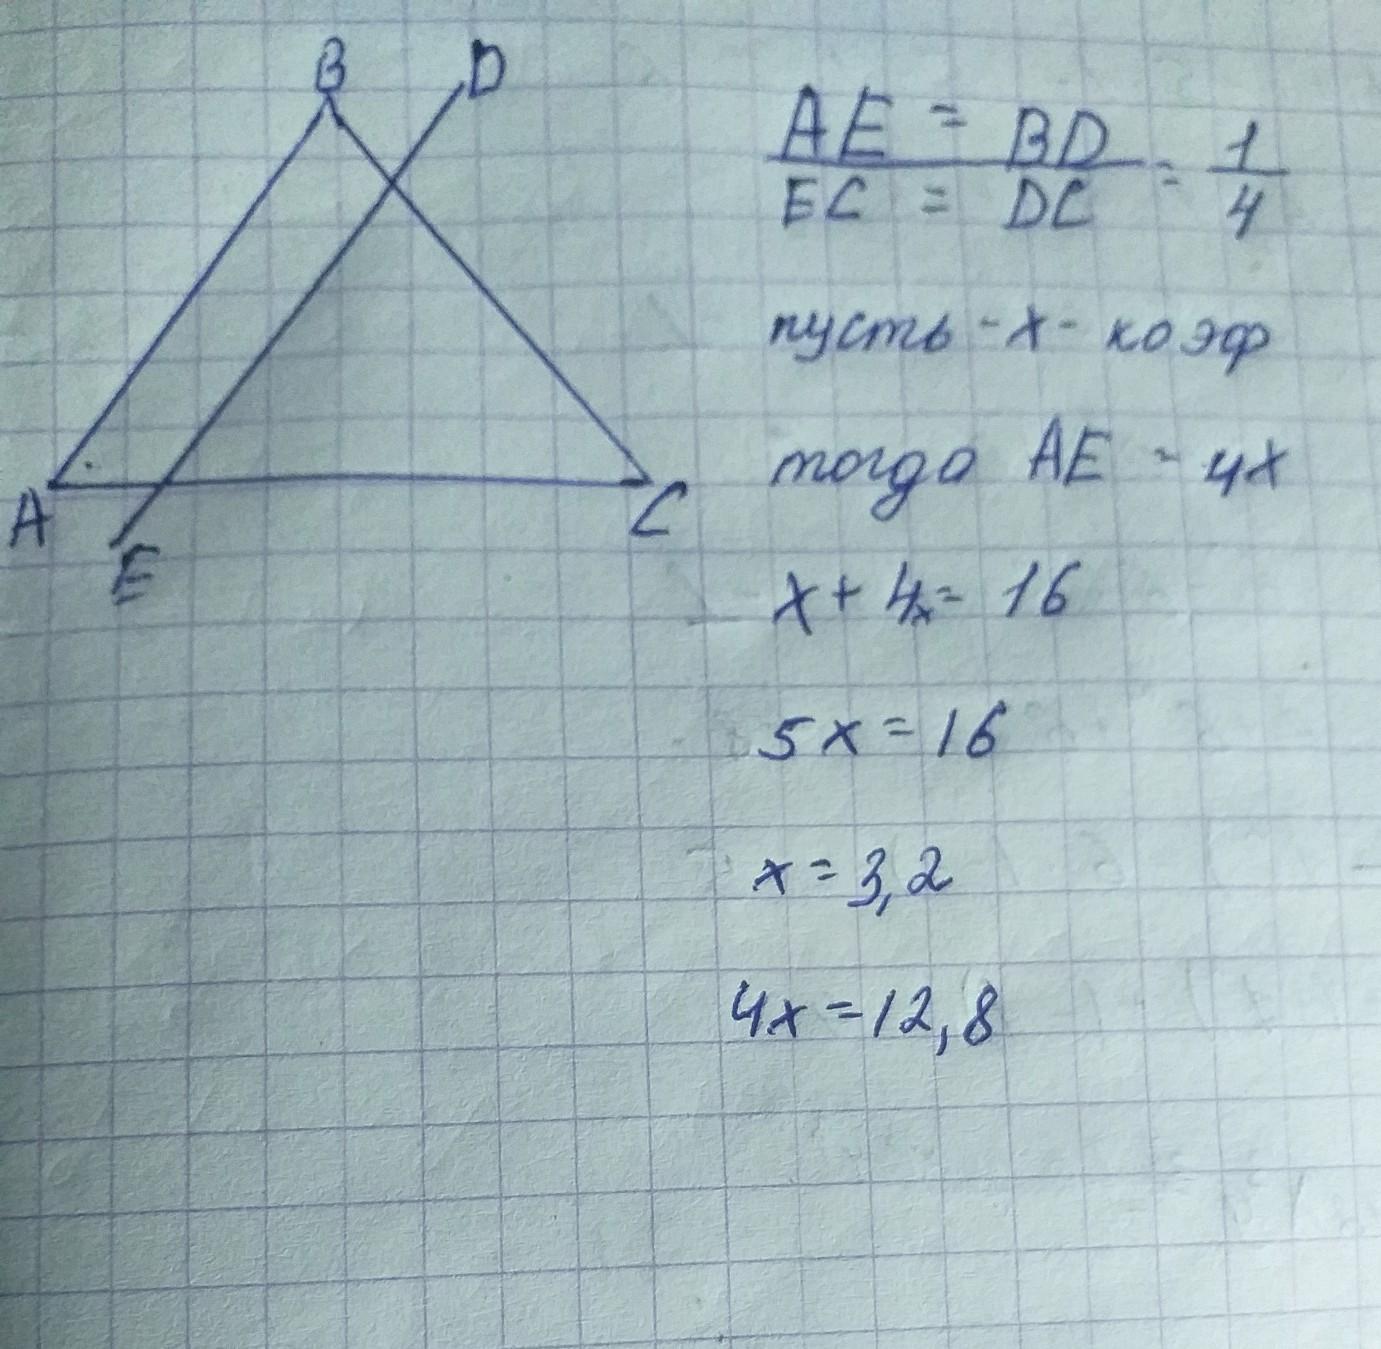 B D
A C
E
AE = BD = 1
EC = DC 4
пусть - x - коэф
тогда AE - 4x
x + 4x = 16
5x = 16
x = 3,2
4x = 12,8